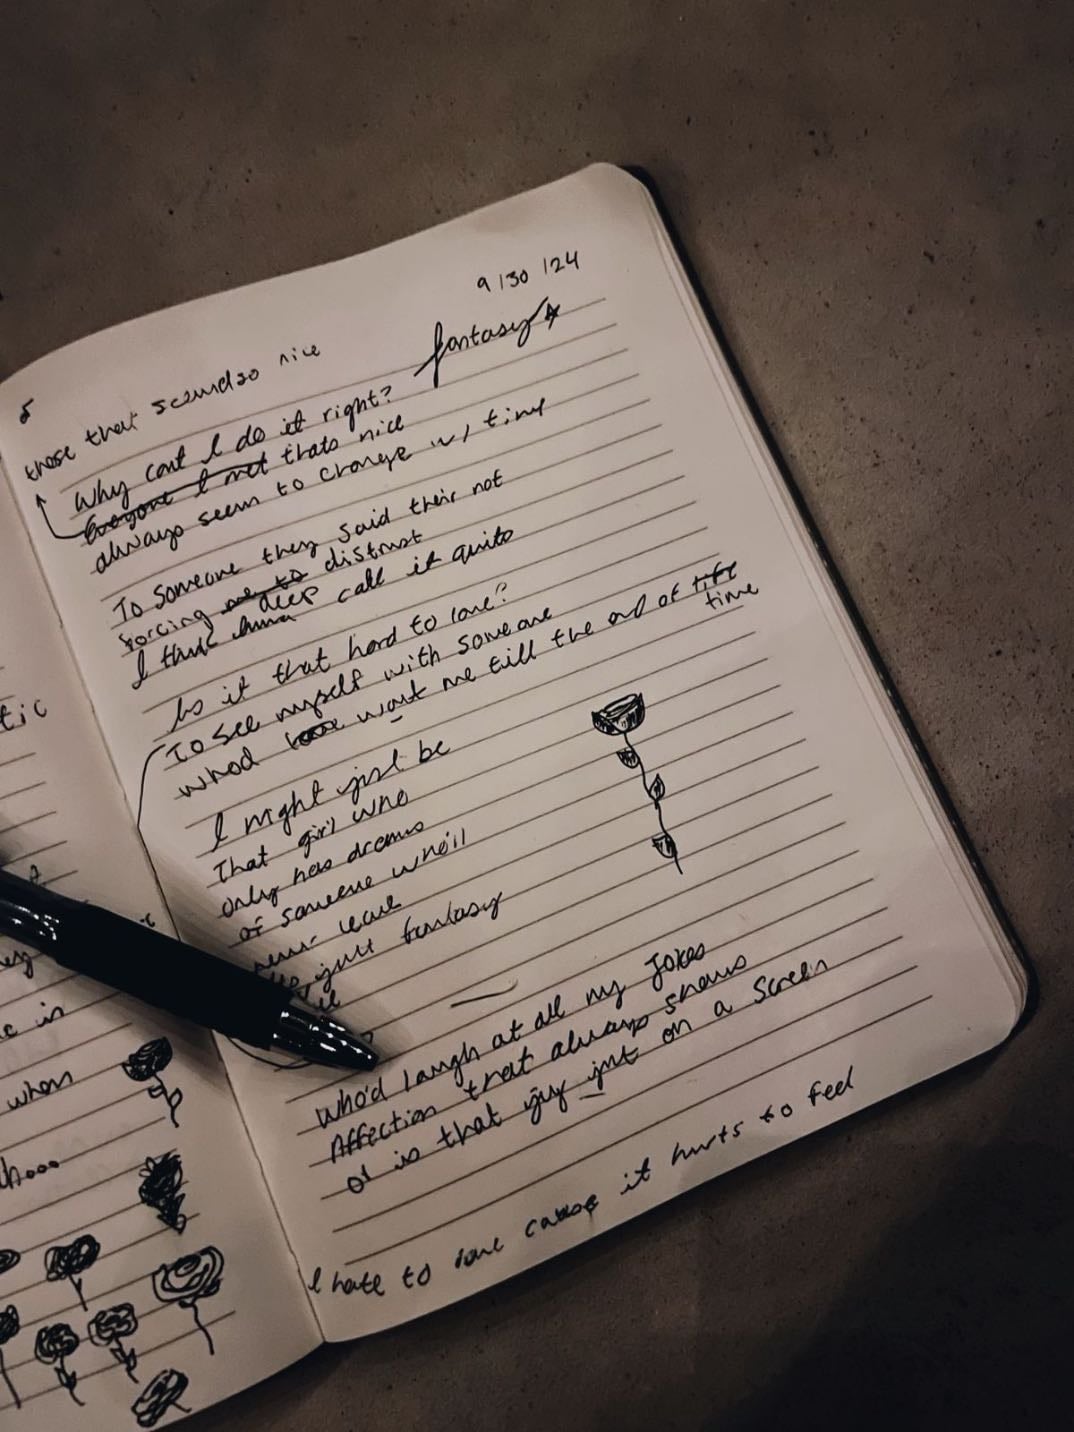 9/30/24
fantasy
those that seemed so nice
Why cant I do it right?
Everyone I met thats nice
always seem to change w/ time
To someone they said their not
forcing me to distrust
I think deep call it quits
Is it that hard to love?
To see myself with someone
whod want me till the end of life
time
I might just be
That girl who
only has dreams
of someone who'll
never leave
just fantasy
who'd laugh at all my jokes
Affection that always shows
or is that guy just on a screen
I hate to love cause it hurts to feel
tic
when